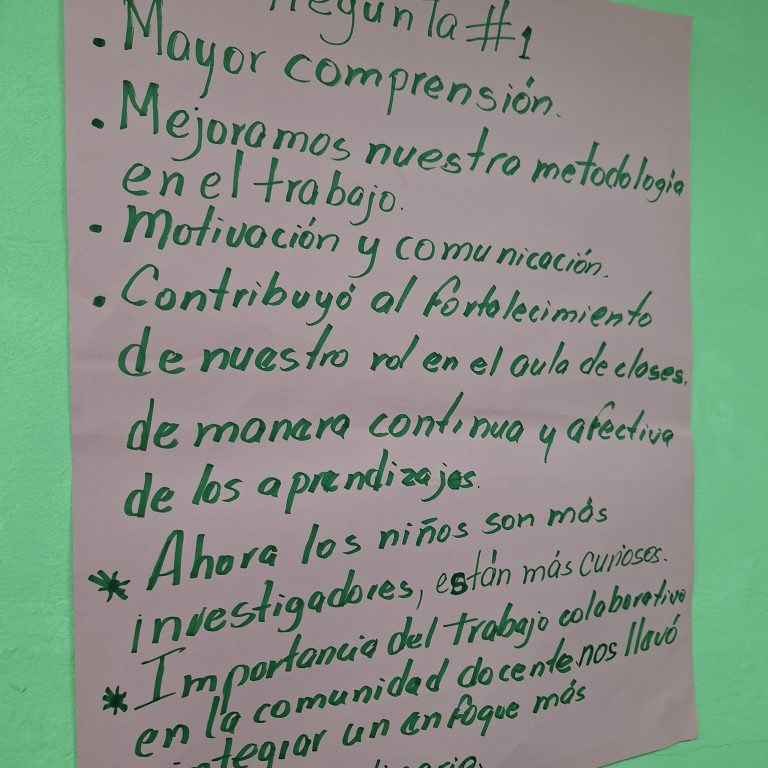 Pregunta #1
. Mayor comprensión.
. Mejoramos nuestra metodología
en el trabajo.
. Motivación y comunicación.
. Contribuyó al fortalecimiento
de nuestro rol en el aula de clases.
de manera continua y afectiva
de los aprendizajes.
* Ahora los niños son más
investigadores, están más curiosos.
* Importancia del trabajo colaborativo
en la comunidad docente nos llavó
integrar un enfoque más